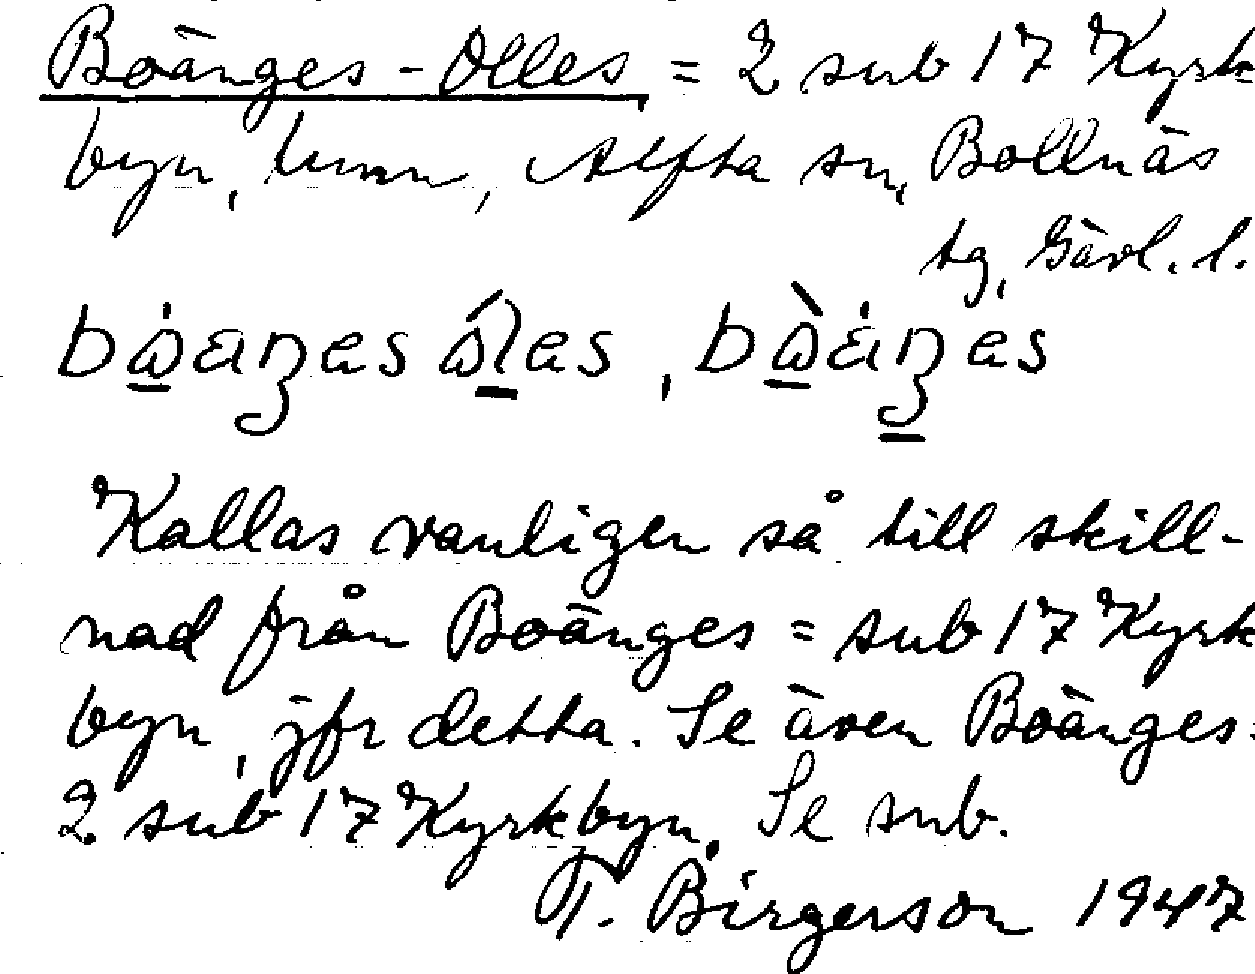 Boänges-Olles = 2 sub 17 Kyrk
byn, hmn, Alfta sn, Bollnäs
tg, Gävl. l.
Kallas vanligen så till skill-
nad från Boänges = sub 17 Kyrk
byn, jfr detta. Se även Boänges =
2 sub 17 Kyrkbyn. Se sub.
T. Birgerson 1947